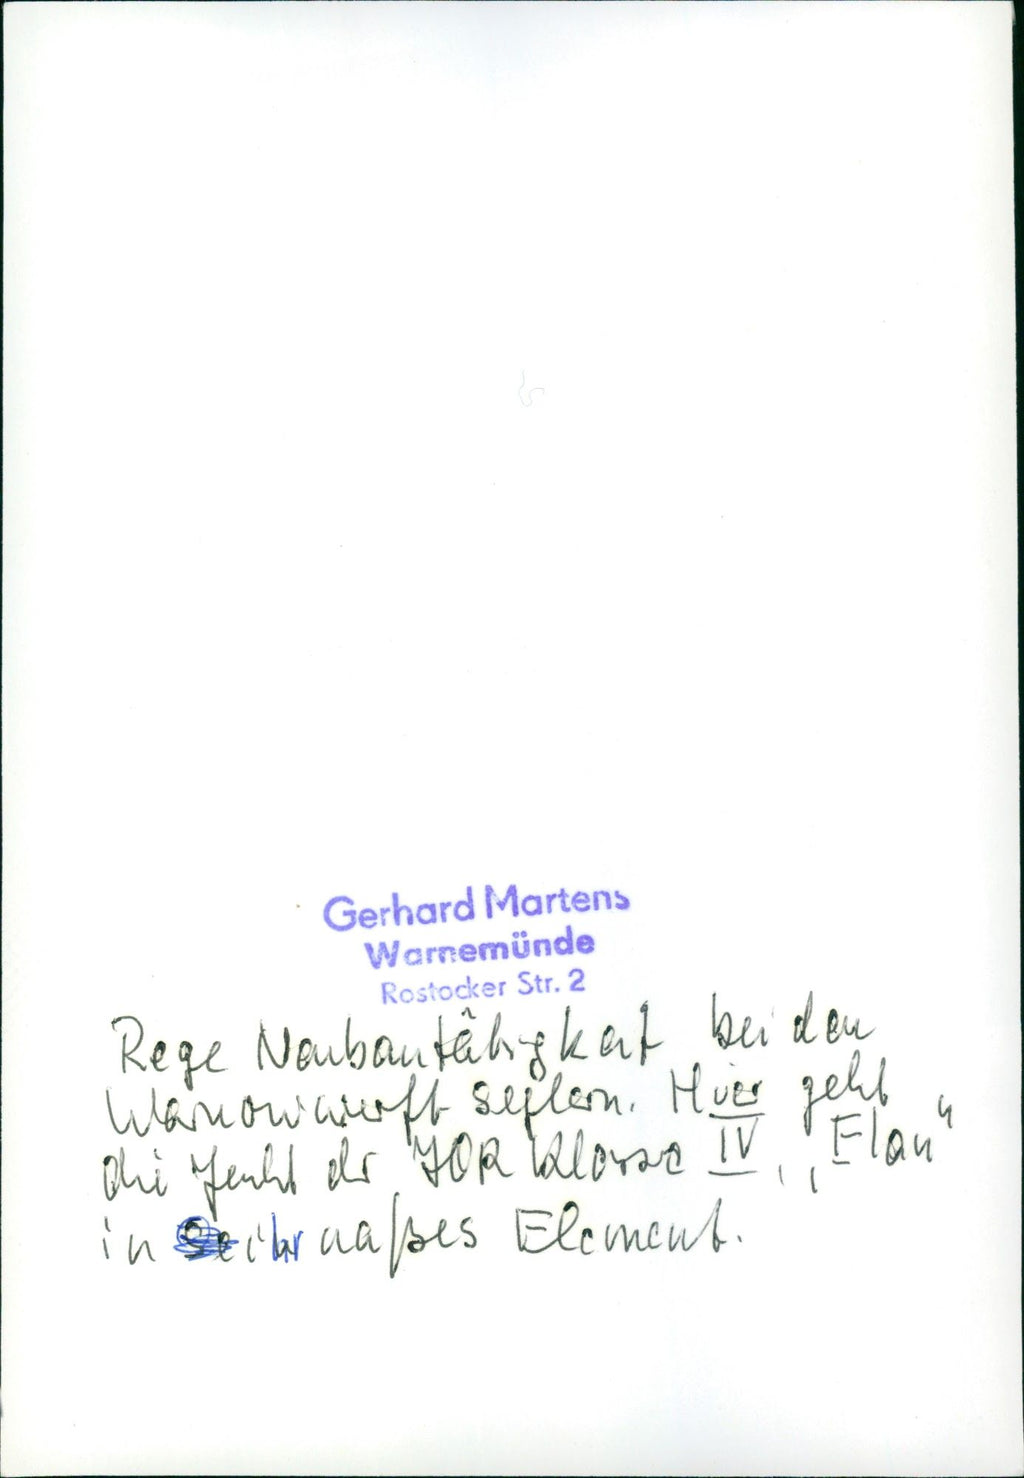 Gerhard Martens
Warnemünde
Rostocker Str. 2
Rege Neubautätigkeit bei den
Warnowwerftseglern. Hier geht
die Jacht der IOR Klasse IV, „Elan“
in ihr naßes Element.